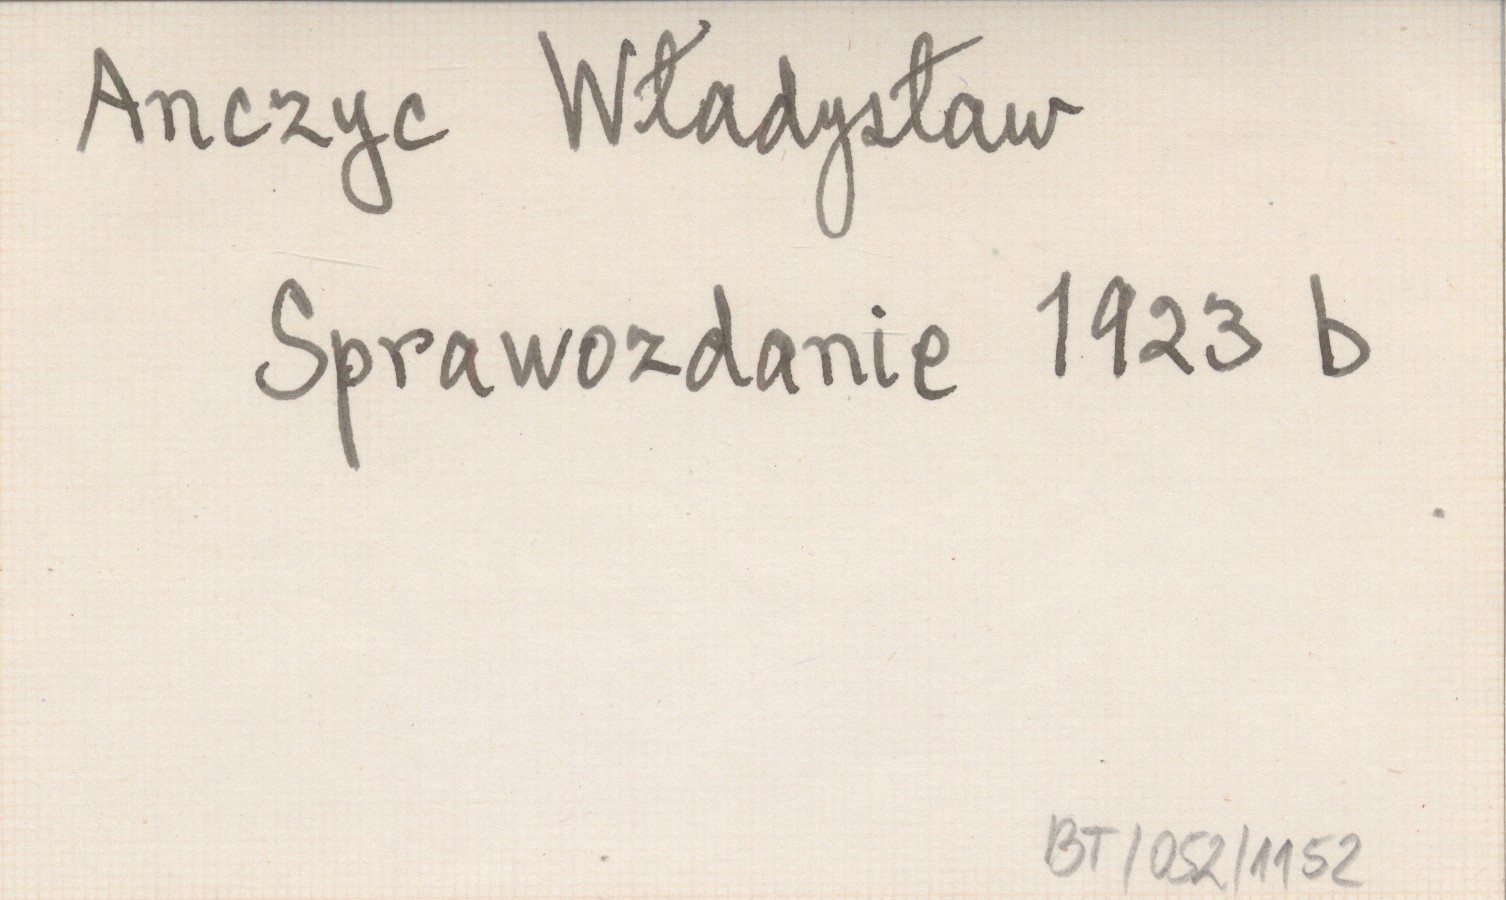 Anczyc Władysław
Sprawozdanie 1923 b
BT/052/1152